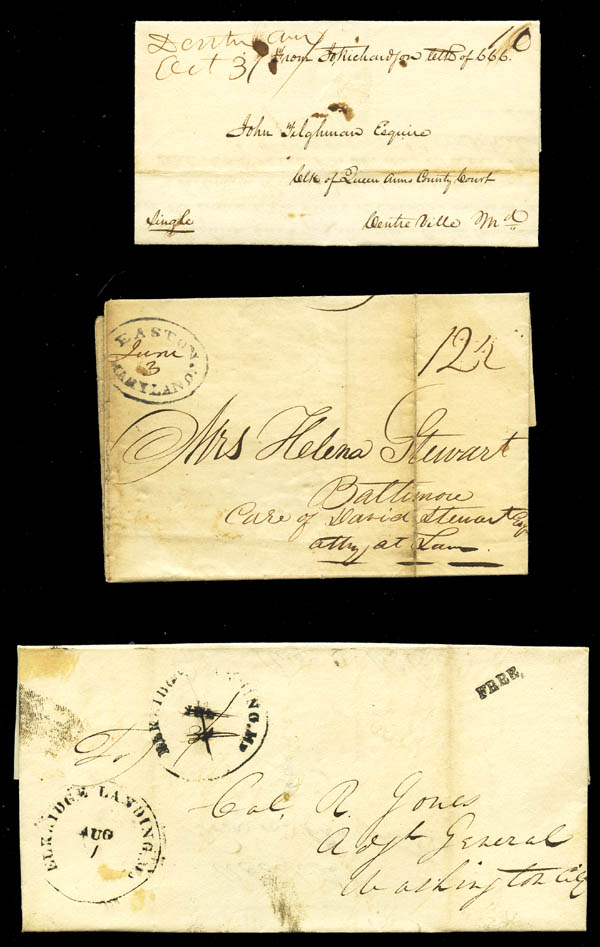 Denton
Oct 31
10
From Jo Richardson Clk of 666.
John Tilghman Esquire
Clk of Queen Anns County Court
Single
Centre Ville Md
EASTON
MARYLAND.
June
3
12½
Mrs Helena Stewart
Baltimore
Care of David Stewart Esq
atty at Law.
FREE,
ELKRIDGE LANDING. Md
To
Col. R. Jones
Adjt General
Washington City
ELKRIDGE LANDING. Md
AUG
1